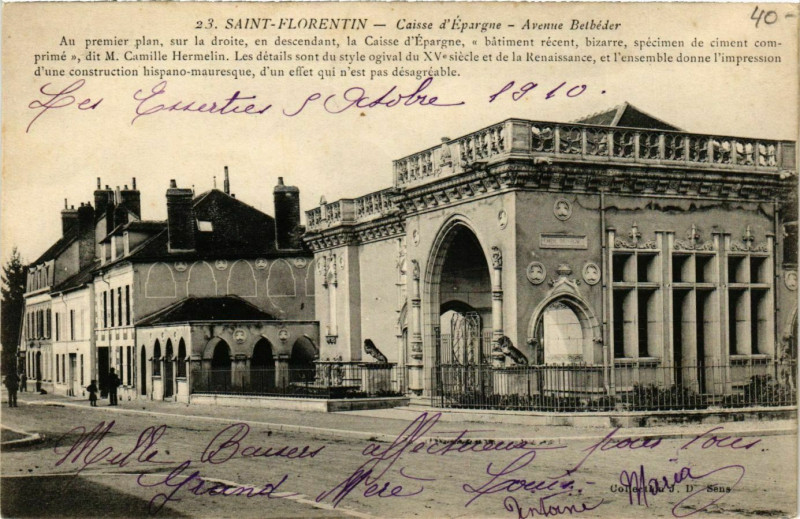 40-
23. SAINT-FLORENTIN — Caisse d'Épargne - Avenue Belbéder
Au premier plan, sur la droite, en descendant, la Caisse d'Épargne, « bâtiment récent, bizarre, spécimen de ciment com-
primé », dit M. Camille Hermelin. Les détails sont du style ogival du XVe siècle et de la Renaissance, et l'ensemble donne l'impression
d'une construction hispano-mauresque, d'un effet qui n'est pas désagréable.
Les Esserties 5 Octobre 1910.
Mille Baisers affectueux pour tous
Grand Mère Louis.
Antoine Maria
Collection J. D. Sens